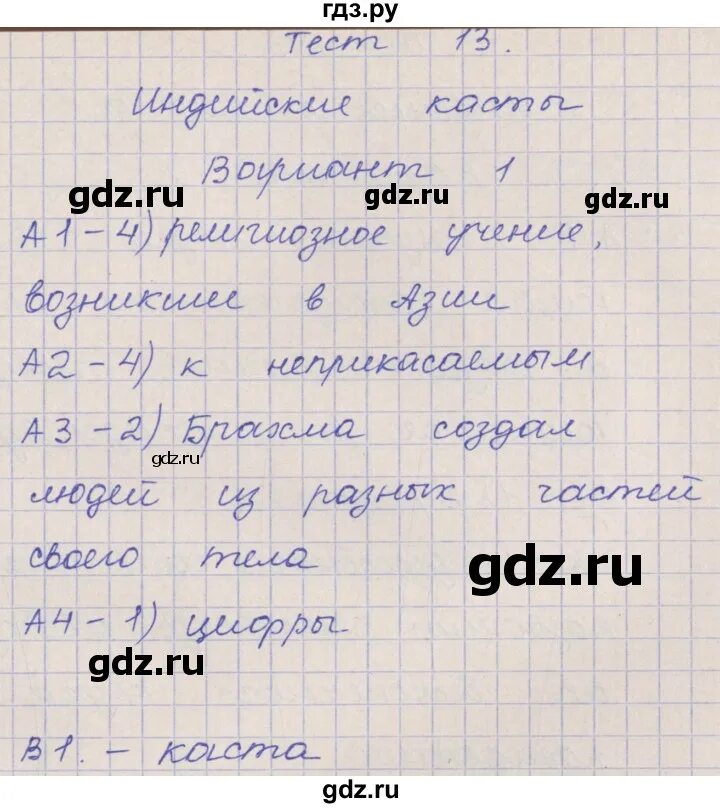 гдз.ру
Тест 13.
Индийские касты
Вариант 1
gdz.ru gdz.ru gdz.ru
А1-4) религиозное учение,
возникшее в Азии
А2-4) к неприкасаемым
А3-2) Брахма создал
gdz.ru
людей из разных частей
своего тела
gdz.ru
А4-1) цифры.
gdz.ru
В1. - каста
gdz.ru